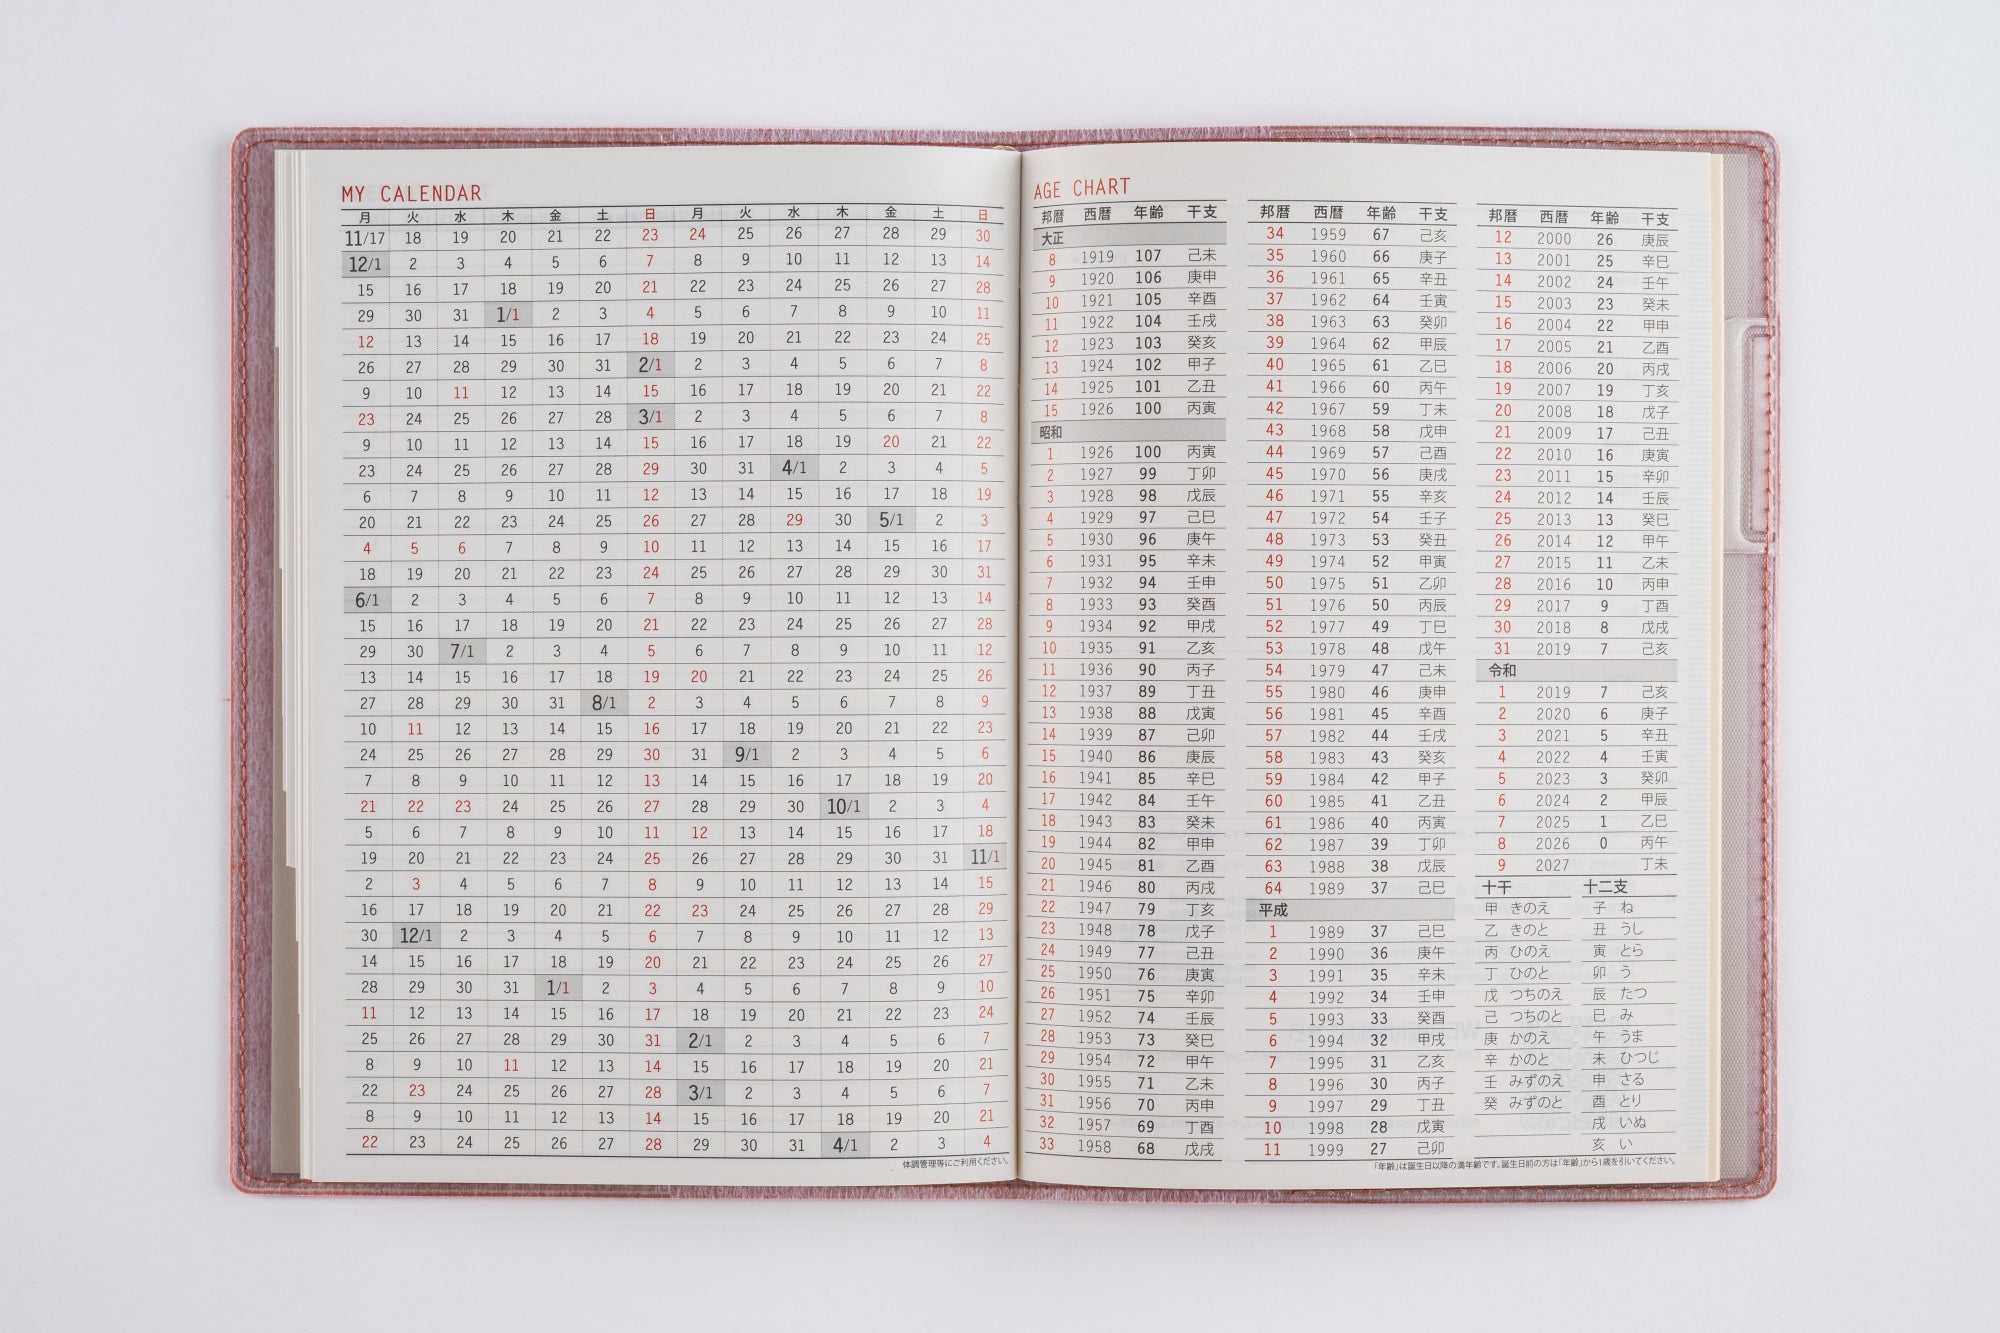 MY CALENDAR
月 火 水 木 金 土 日 月 火 水 木 金 土 日
11/17 18 19 20 21 22 23 24 25 26 27 28 29 30
12/1 2 3 4 5 6 7 8 9 10 11 12 13 14
15 16 17 18 19 20 21 22 23 24 25 26 27 28
29 30 31 1/1 2 3 4 5 6 7 8 9 10 11
12 13 14 15 16 17 18 19 20 21 22 23 24 25
26 27 28 29 30 31 2/1 2 3 4 5 6 7 8
9 10 11 12 13 14 15 16 17 18 19 20 21 22
23 24 25 26 27 28 3/1 2 3 4 5 6 7 8
9 10 11 12 13 14 15 16 17 18 19 20 21 22
23 24 25 26 27 28 29 30 31 4/1 2 3 4 5
6 7 8 9 10 11 12 13 14 15 16 17 18 19
20 21 22 23 24 25 26 27 28 29 30 5/1 2 3
4 5 6 7 8 9 10 11 12 13 14 15 16 17
18 19 20 21 22 23 24 25 26 27 28 29 30 31
6/1 2 3 4 5 6 7 8 9 10 11 12 13 14
15 16 17 18 19 20 21 22 23 24 25 26 27 28
29 30 7/1 2 3 4 5 6 7 8 9 10 11 12
13 14 15 16 17 18 19 20 21 22 23 24 25 26
27 28 29 30 31 8/1 2 3 4 5 6 7 8 9
10 11 12 13 14 15 16 17 18 19 20 21 22 23
24 25 26 27 28 29 30 31 9/1 2 3 4 5 6
7 8 9 10 11 12 13 14 15 16 17 18 19 20
21 22 23 24 25 26 27 28 29 30 10/1 2 3 4
5 6 7 8 9 10 11 12 13 14 15 16 17 18
19 20 21 22 23 24 25 26 27 28 29 30 31 11/1
2 3 4 5 6 7 8 9 10 11 12 13 14 15
16 17 18 19 20 21 22 23 24 25 26 27 28 29
30 12/1 2 3 4 5 6 7 8 9 10 11 12 13
14 15 16 17 18 19 20 21 22 23 24 25 26 27
28 29 30 31 1/1 2 3 4 5 6 7 8 9 10
11 12 13 14 15 16 17 18 19 20 21 22 23 24
25 26 27 28 29 30 31 2/1 2 3 4 5 6 7
8 9 10 11 12 13 14 15 16 17 18 19 20 21
22 23 24 25 26 27 28 3/1 2 3 4 5 6 7
8 9 10 11 12 13 14 15 16 17 18 19 20 21
22 23 24 25 26 27 28 29 30 31 4/1 2 3 4
体調管理等にご利用ください。
AGE CHART
邦暦 西暦 年齢 干支
大正
8 1919 107 己未
9 1920 106 庚申
10 1921 105 辛酉
11 1922 104 壬戌
12 1923 103 癸亥
13 1924 102 甲子
14 1925 101 乙丑
15 1926 100 丙寅
昭和
1 1926 100 丙寅
2 1927 99 丁卯
3 1928 98 戊辰
4 1929 97 己巳
5 1930 96 庚午
6 1931 95 辛未
7 1932 94 壬申
8 1933 93 癸酉
9 1934 92 甲戌
10 1935 91 乙亥
11 1936 90 丙子
12 1937 89 丁丑
13 1938 88 戊寅
14 1939 87 己卯
15 1940 86 庚辰
16 1941 85 辛巳
17 1942 84 壬午
18 1943 83 癸未
19 1944 82 甲申
20 1945 81 乙酉
21 1946 80 丙戌
22 1947 79 丁亥
23 1948 78 戊子
24 1949 77 己丑
25 1950 76 庚寅
26 1951 75 辛卯
27 1952 74 壬辰
28 1953 73 癸巳
29 1954 72 甲午
30 1955 71 乙未
31 1956 70 丙申
32 1957 69 丁酉
33 1958 68 戊戌
邦暦 西暦 年齢 干支
34 1959 67 己亥
35 1960 66 庚子
36 1961 65 辛丑
37 1962 64 壬寅
38 1963 63 癸卯
39 1964 62 甲辰
40 1965 61 乙巳
41 1966 60 丙午
42 1967 59 丁未
43 1968 58 戊申
44 1969 57 己酉
45 1970 56 庚戌
46 1971 55 辛亥
47 1972 54 壬子
48 1973 53 癸丑
49 1974 52 甲寅
50 1975 51 乙卯
51 1976 50 丙辰
52 1977 49 丁巳
53 1978 48 戊午
54 1979 47 己未
55 1980 46 庚申
56 1981 45 辛酉
57 1982 44 壬戌
58 1983 43 癸亥
59 1984 42 甲子
60 1985 41 乙丑
61 1986 40 丙寅
62 1987 39 丁卯
63 1988 38 戊辰
64 1989 37 己巳
平成
1 1989 37 己巳
2 1990 36 庚午
3 1991 35 辛未
4 1992 34 壬申
5 1993 33 癸酉
6 1994 32 甲戌
7 1995 31 乙亥
8 1996 30 丙子
9 1997 29 丁丑
10 1998 28 戊寅
11 1999 27 己卯
邦暦 西暦 年齢 干支
12 2000 26 庚辰
13 2001 25 辛巳
14 2002 24 壬午
15 2003 23 癸未
16 2004 22 甲申
17 2005 21 乙酉
18 2006 20 丙戌
19 2007 19 丁亥
20 2008 18 戊子
21 2009 17 己丑
22 2010 16 庚寅
23 2011 15 辛卯
24 2012 14 壬辰
25 2013 13 癸巳
26 2014 12 甲午
27 2015 11 乙未
28 2016 10 丙申
29 2017 9 丁酉
30 2018 8 戊戌
31 2019 7 己亥
令和
1 2019 7 己亥
2 2020 6 庚子
3 2021 5 辛丑
4 2022 4 壬寅
5 2023 3 癸卯
6 2024 2 甲辰
7 2025 1 乙巳
8 2026 0 丙午
9 2027 丁未
十干 十二支
甲 きのえ 子 ね
乙 きのと 丑 うし
丙 ひのえ 寅 とら
丁 ひのと 卯 う
戊 つちのえ 辰 たつ
己 つちのと 巳 み
庚 かのえ 午 うま
辛 かのと 未 ひつじ
壬 みずのえ 申 さる
癸 みずのと 酉 とり
戌 いぬ
亥 い
「年齢」は誕生日以降の満年齢です。誕生日前の方は「年齢」から1歳を引いてください。